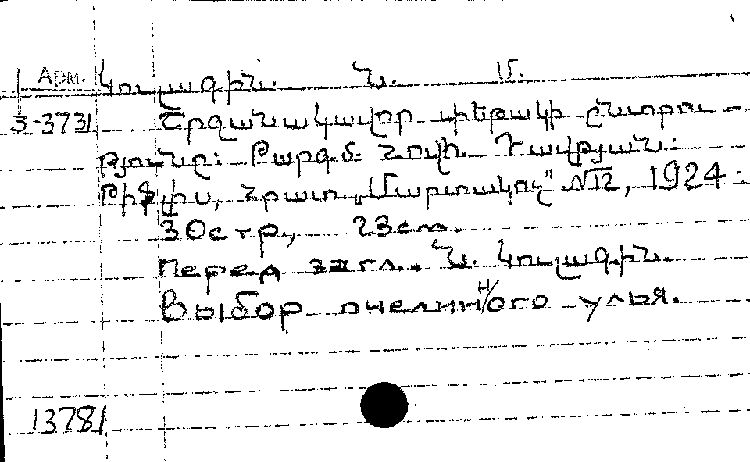 Арм. Կուլագին. Ն. Մ.
3-3731 Շրջանակավոր փեթակի ընտրու-
թյունը: Թարգմ. Հովհ. Դավթյան:
Թիֆլիս, Հրատ. „Մարտակոչ" №12, 1924:
30 стр., 23 см.
Перед загл.. Ն. Կուլագին.
Выбор пчелинного улья.
13781